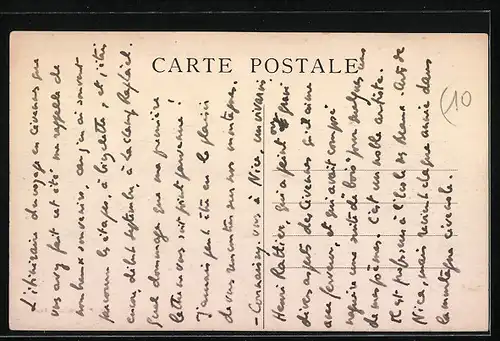 CARTE POSTALE
(10
L'itinéraire du voyage en Cévennes que
vous avez fait cet été me rappelle de
nombreux souvenirs, car j'en ai souvent
parcouru les étapes, à bicyclette, et, j'étais
encore, début septembre, à La Can
Quel dommage que ma première
lettre ne vous soit point parvenue !
J'aurais peut-être eu le plaisir
de vous rencontrer sur nos montagnes.
- Connaissez-vous à Nice, un vivarois
Henri, qui a peint ou gravé
divers aspects des Cévennes qu'il aime
avec ferveur, et qui avait composé
naguère une suite de bois pour quelques uns
de mes poèmes. C'est un noble artiste.
Il est professeur à l'École des Beaux-Arts de
Nice, mais revient chaque année dans
la montagne cévenole.